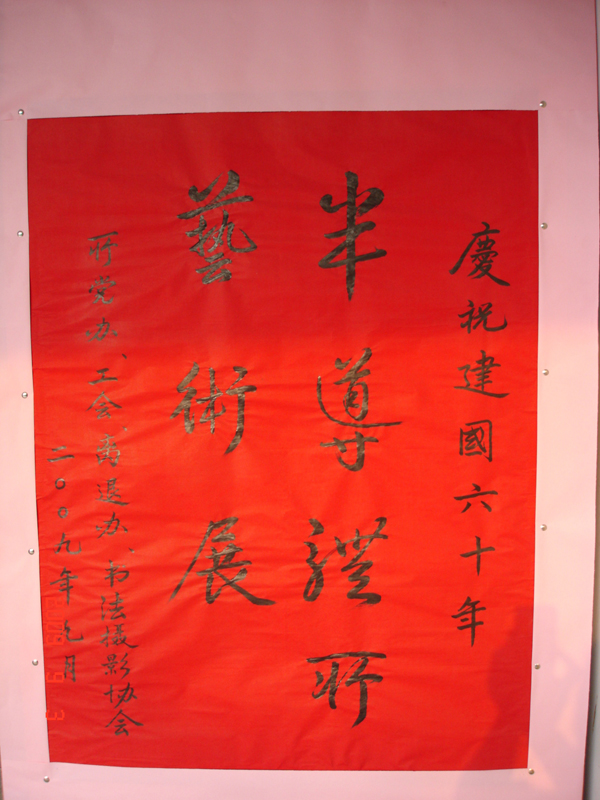 慶祝建國六十年
半導體所
藝術展
所党办、工会、离退办、书法摄影协会
二00九年 月